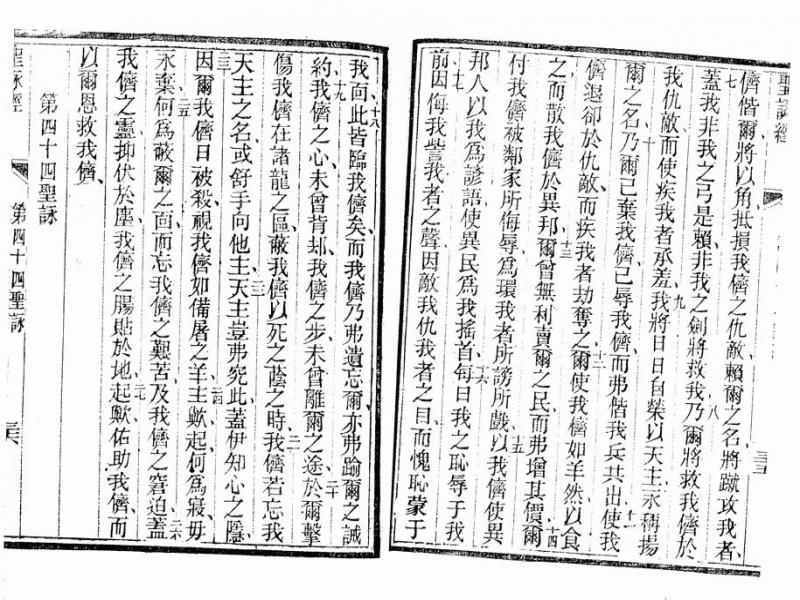 聖詠經
三五
七儕偕爾將以角抵損我儕之仇敵、賴爾之名將蹴攻我者、
蓋我非我之弓是賴、非我之劍將救我、八乃爾將救我儕於
我仇敵、而使疾我者承羞、九我將日日自榮以天主、永稱揚
爾之名、十乃爾已棄我儕、已辱我儕、而弗偕我兵共出、十一使我
儕退卻於仇敵、而疾我者劫奪之、十二爾使我儕如羊然以食
之、而散我儕於異邦、十三爾曾無利賣爾之民、而弗增其價、十四爾
付我儕被鄰家所侮辱、爲環我者所謗所戲、十五以我儕使異
邦人以我爲諺語、使異民爲我搖首、十六每日我之恥辱于我
前、十七因侮我訾我者之聲、因敵我仇我者之目、而愧恥蒙于
我面、十八此皆臨我儕矣、而我儕乃弗遺忘爾、亦弗踰爾之誡
約、十九我儕之心未曾背却、我儕之步未曾離爾之途、二十於爾擊
傷我儕在諸龍之區、蔽我儕以死之蔭之時、二一我儕若忘我
天主之名、或舒手向他主、二二天主豈弗究此、蓋伊知心之隱、
二三因爾我儕日被殺、視我儕如備屠之羊、二四主歟起、何爲寢、毋
永棄、二五何爲蔽爾之面、而忘我儕之艱苦及我儕之窘迫、二六蓋
我儕之靈抑伏於塵、我儕之腸貼於地、二七起歟、佑助我儕、而
以爾恩救我儕、
第四十四聖詠
聖詠經
第四十四聖詠